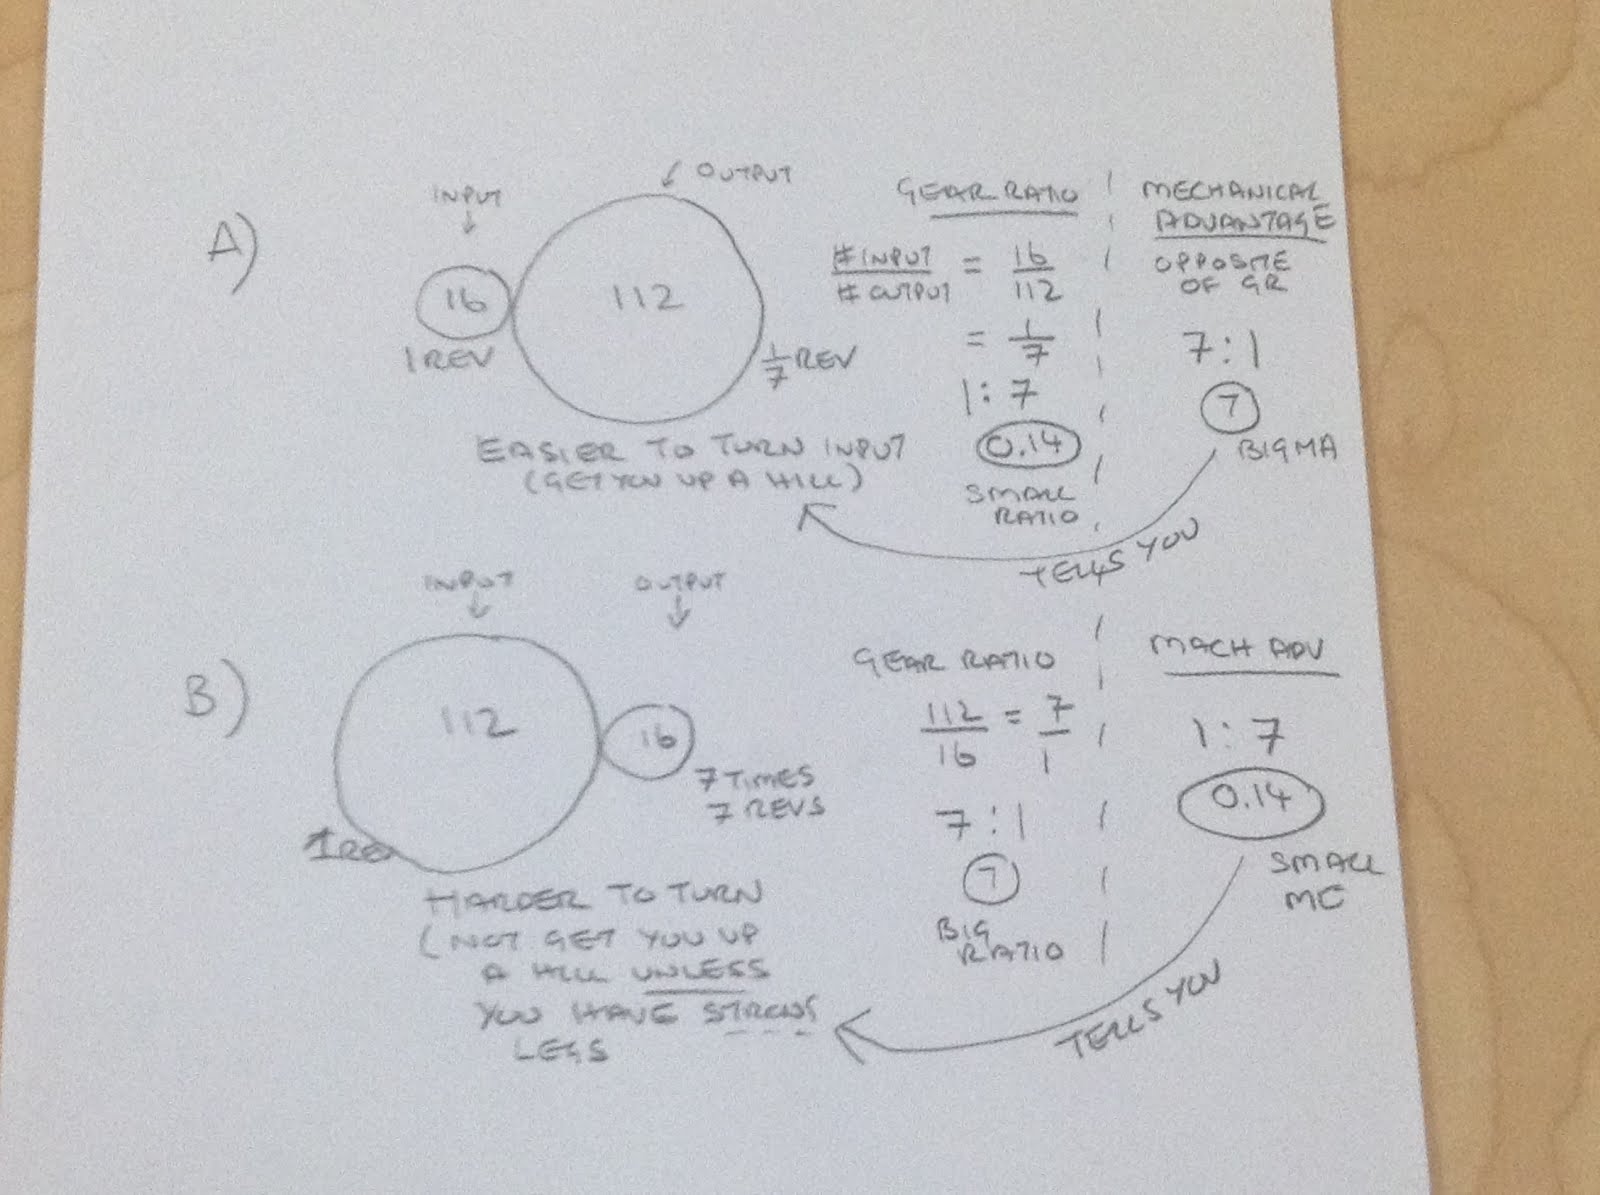 A)
INPUT
↓
OUTPUT
16
112
1 REV
1/7 REV
EASIER TO TURN INPUT
(GET YOU UP A HILL)
GEAR RATIO
# INPUT / # OUTPUT = 16/112
= 1/7
1:7
0.14
SMALL
RATIO
MECHANICAL
ADVANTAGE
OPPOSITE
OF GR
7:1
7
BIG MA
TELLS YOU
B)
INPUT
OUTPUT
112
16
7 TIMES
7 REVS
1 REV
HARDER TO TURN
(NOT GET YOU UP
A HILL UNLESS
YOU HAVE STRONG
LEGS
GEAR RATIO
112/16 = 7/1
7:1
7
BIG
RATIO
MACH ADV
1:7
0.14
SMALL
MC
TELLS YOU